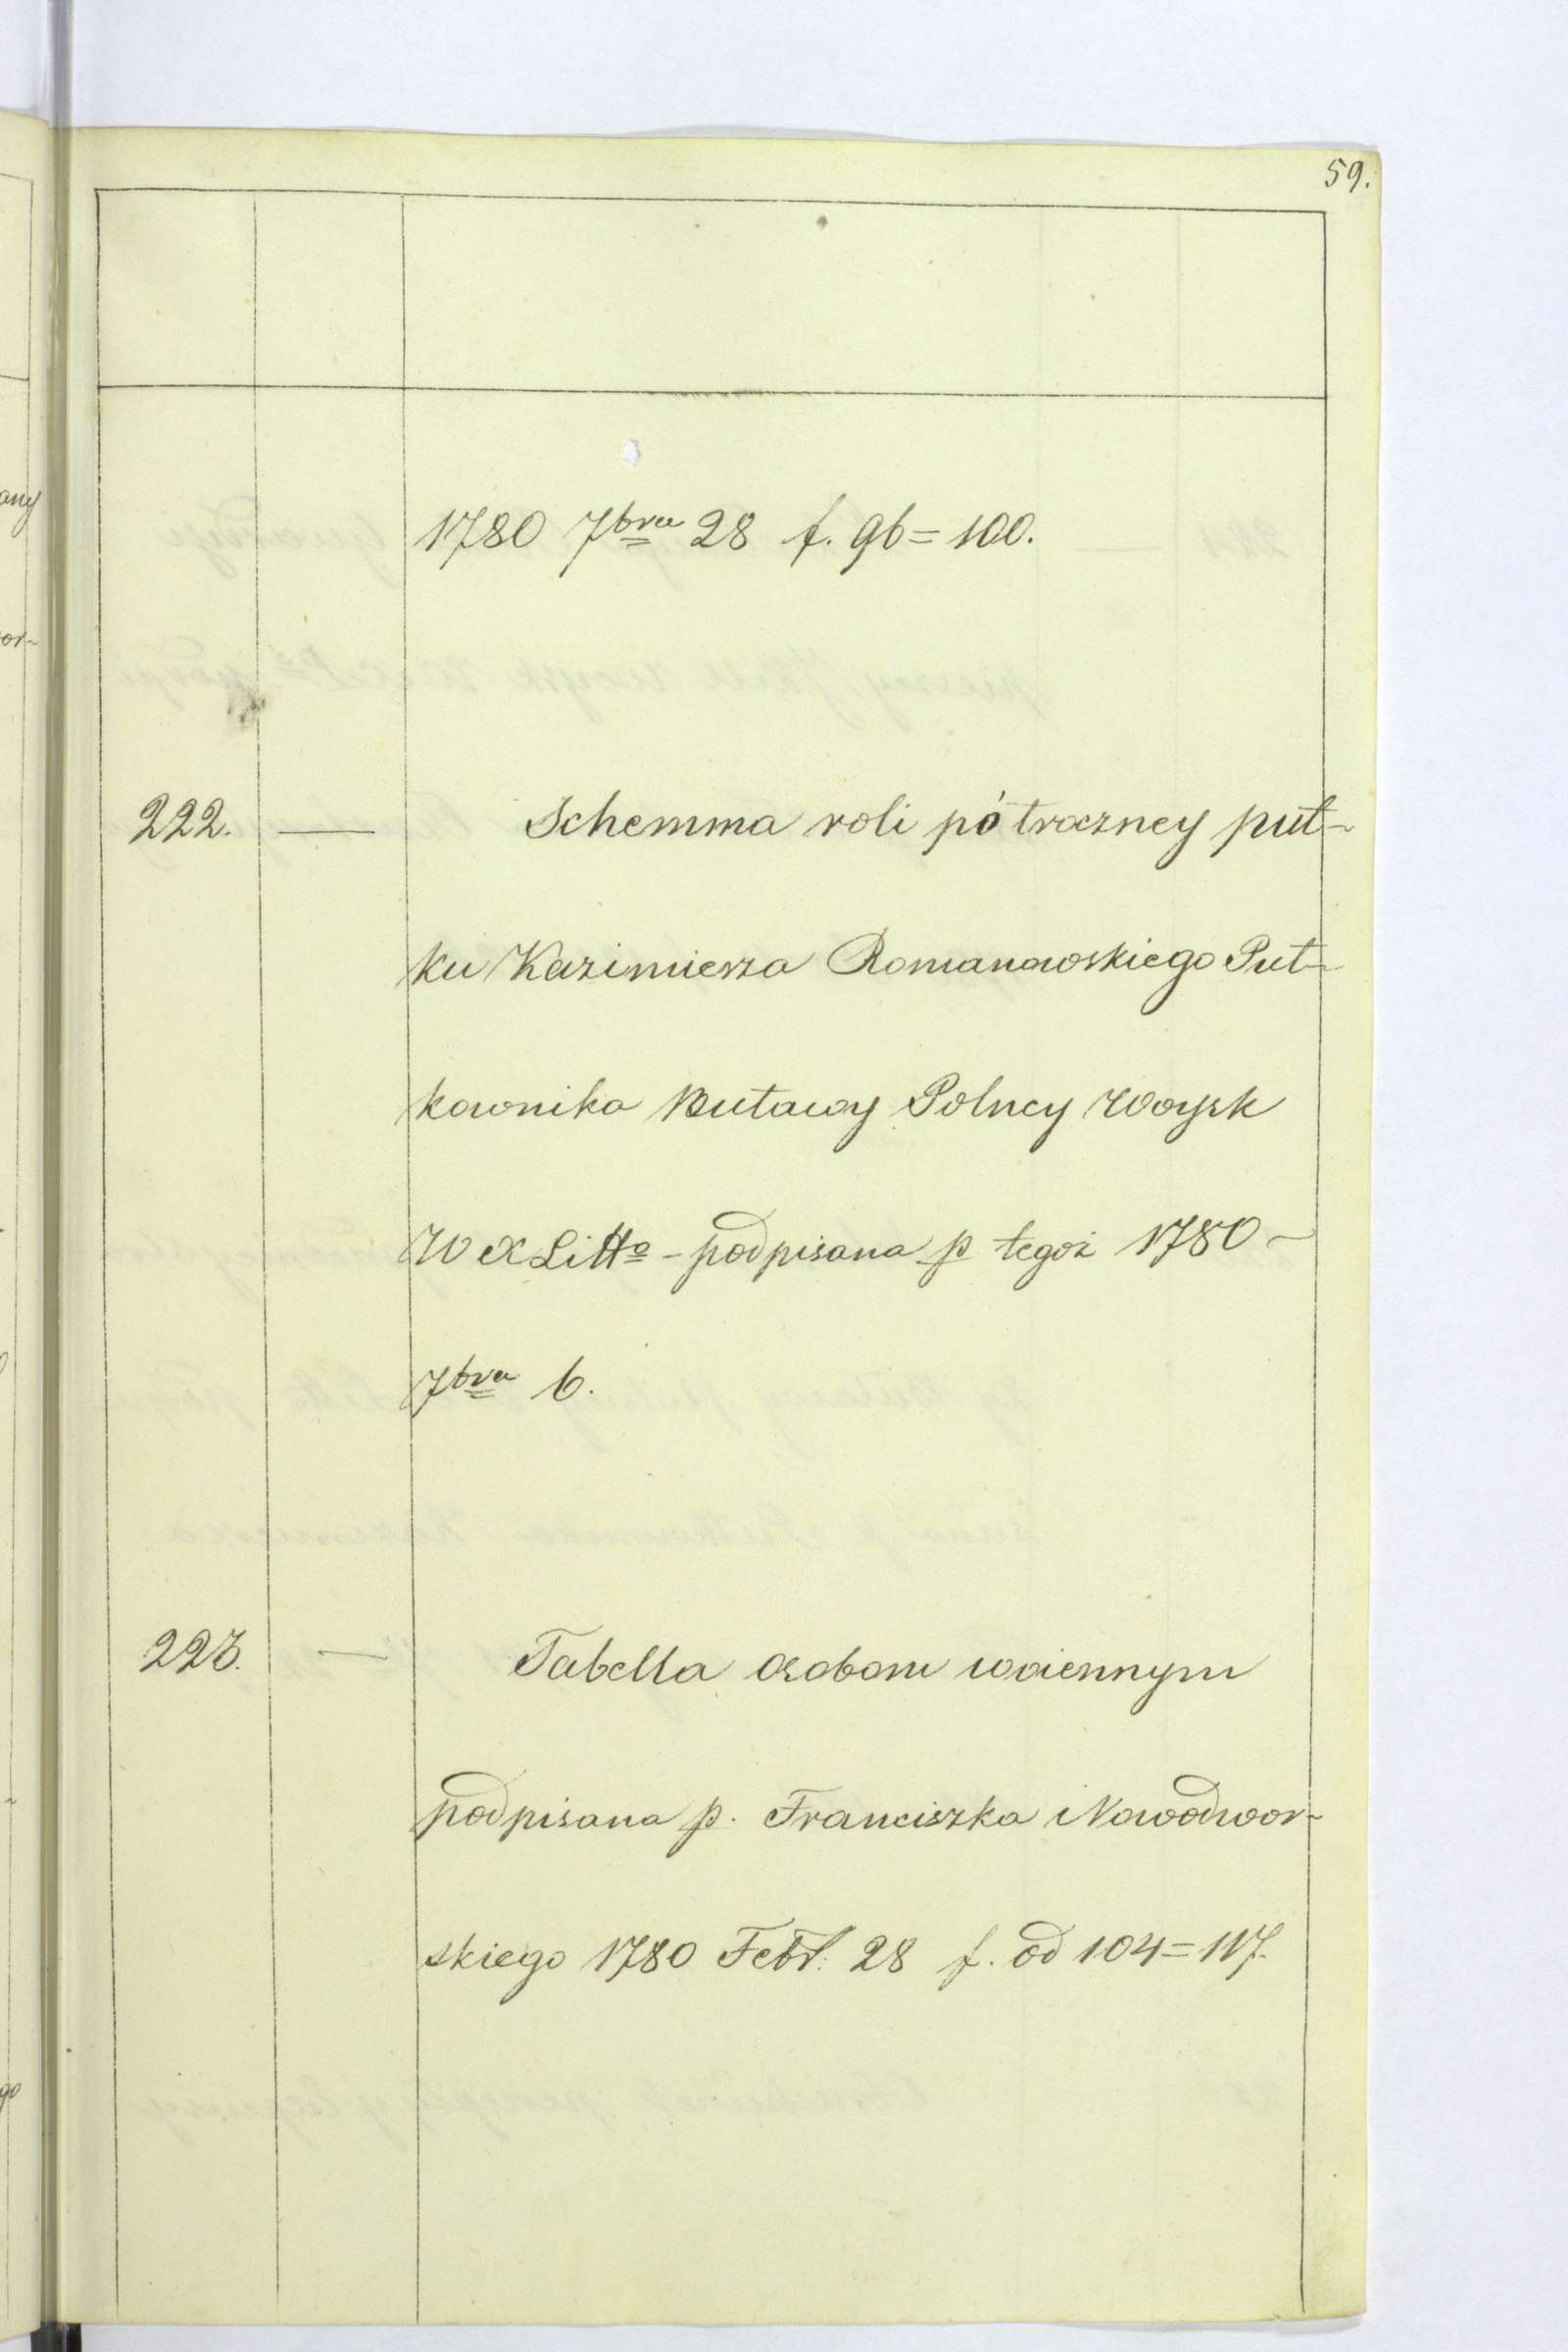 59.
1780 7bra 28 f. 96=100.
222. — Schemma roli półroczney puł-
ku Kazimierza Romanowskiego Puł-
kownika Buławy Polney Woysk
W X Litto - podpisana p tegoż 1780 -
7bra 6.
223. — Tabella osobom woiennym
podpisana p. Franciszka Nowodwor-
skiego 1780 Febr: 28 f. od 104=117.
any
or-
go